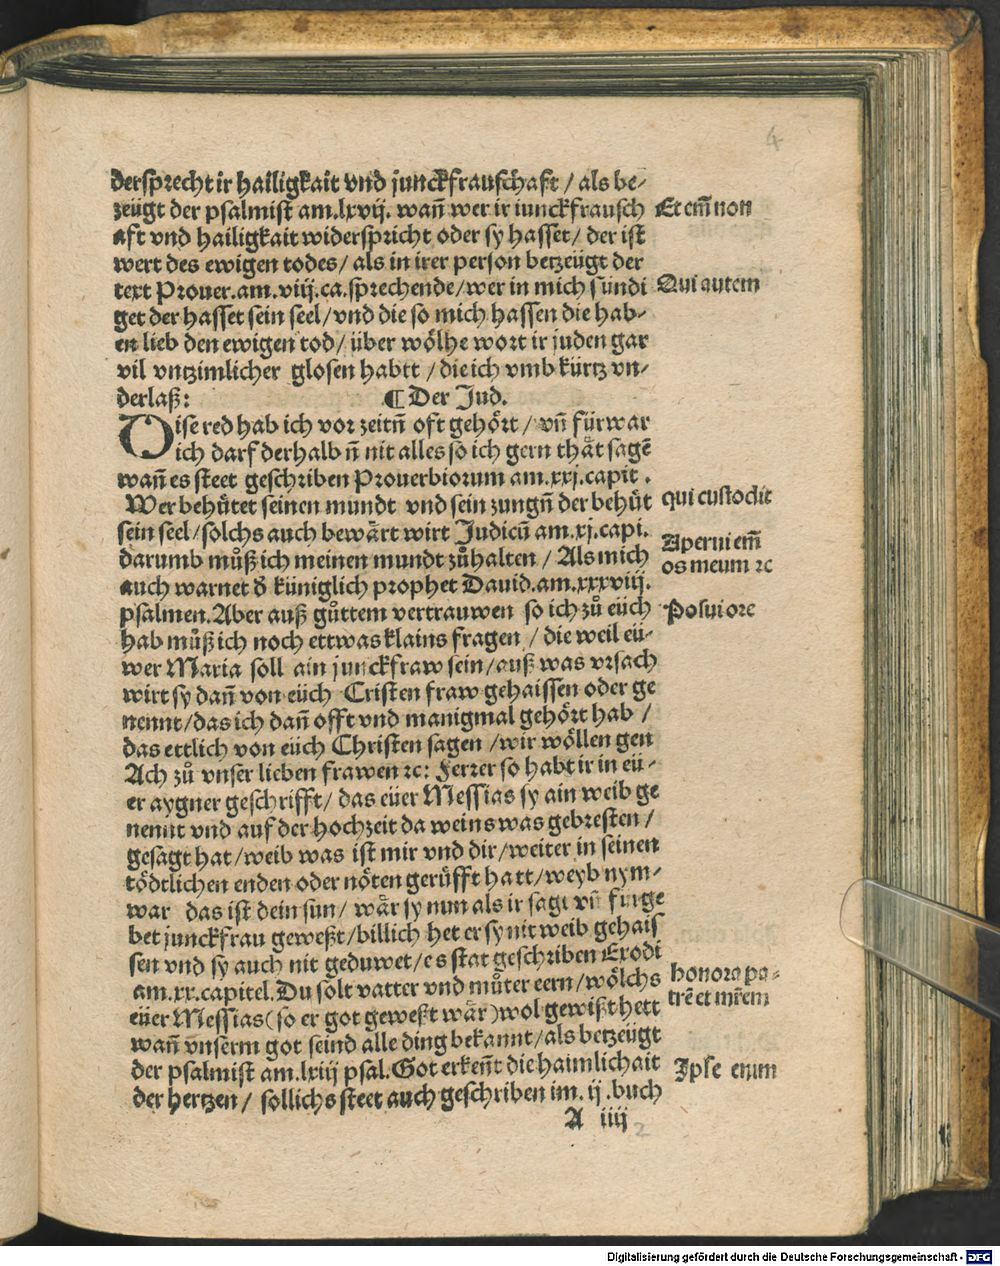 4
dersprecht ir hailigkait vnd junckfrauschaft / als be-
zeügt der psalmist am.lxvij. wañ wer ir iunckfrausch
aft vnd hailigkait widerspricht oder sy hasset / der ist
wert des ewigen todes / als in irer person betzeügt der
text Prouer.am.viij.ca.sprechende / wer in mich sündi
get der hasset sein seel / vnd die so mich hassen die hab-
en lieb den ewigen tod / über wölhe wort ir juden gar
vil vntzimlicher glosen habtt / die ich vmb kürtz vn-
derlaß: ¶ Der Jud.
Dise red hab ich vor zeitñ oft gehört / vñ fürwar
ich darf derhalb ñ nit alles so ich gern thät sagē
wañ es steet geschriben Prouerbiorum am.xxj.capit .
Wer behütet seinen mundt vnd sein zungñ der behüt
sein seel / solchs auch bewärt wirt Judicū am.xj.capi.
darumb můß ich meinen mundt zůhalten / Als mich
auch warnet d̕ küniglich prophet Dauid.am.xxxviij.
psalmen. Aber auß gůttem vertrauwen so ich zů eüch
hab můß ich noch ettwas klains fragen / die weil eü-
wer Maria soll ain junckfraw sein / auß was vrsach
wirt sy dañ von eüch Cristen fraw gehaissen oder ge
nennt / das ich dañ offt vnd manigmal gehört hab /
das ettlich von eüch Christen sagen / wir wöllen gen
Ach zů vnser lieben frawen ꝛc: Ferrer so habt ir in eü-
er aygner geschrifft / das eüer Messias sy ain weib ge
nennt vnd auf der hochzeit da weins was gebresten /
gesagt hat / weib was ist mir vnd dir / weiter in seinen
tödtlichen enden oder nöten gerüfft hatt / weyb nym-
war das ist dein sun / wär sy nun als ir sagt vñ fürge
bet junckfrau geweßt / billich het er sy nit weib gehais
sen vnd sy auch nit geduwet / es stat geschriben Exodi
am.xx.capitel. Du solt vatter vnd můter eern / wölchs
eüer Messias (so er got geweßt wär) wol gewißt hett
wañ vnserm got seind alle ding bekannt / als betzeügt
der psalmist am.lxiij psal. Got erkeñt die haimlichait
der hertzen / sollichs steet auch geschriben im. ij .buch
A iiij
2
Et em̄ non
Qui autem
qui custodit
Aperui em̄
os meum ꝛc
Posui ore
honora pa-
trē et mrēm
Ipse enim
Digitalisierung gefördert durch die Deutsche Forschungsgemeinschaft - DFG